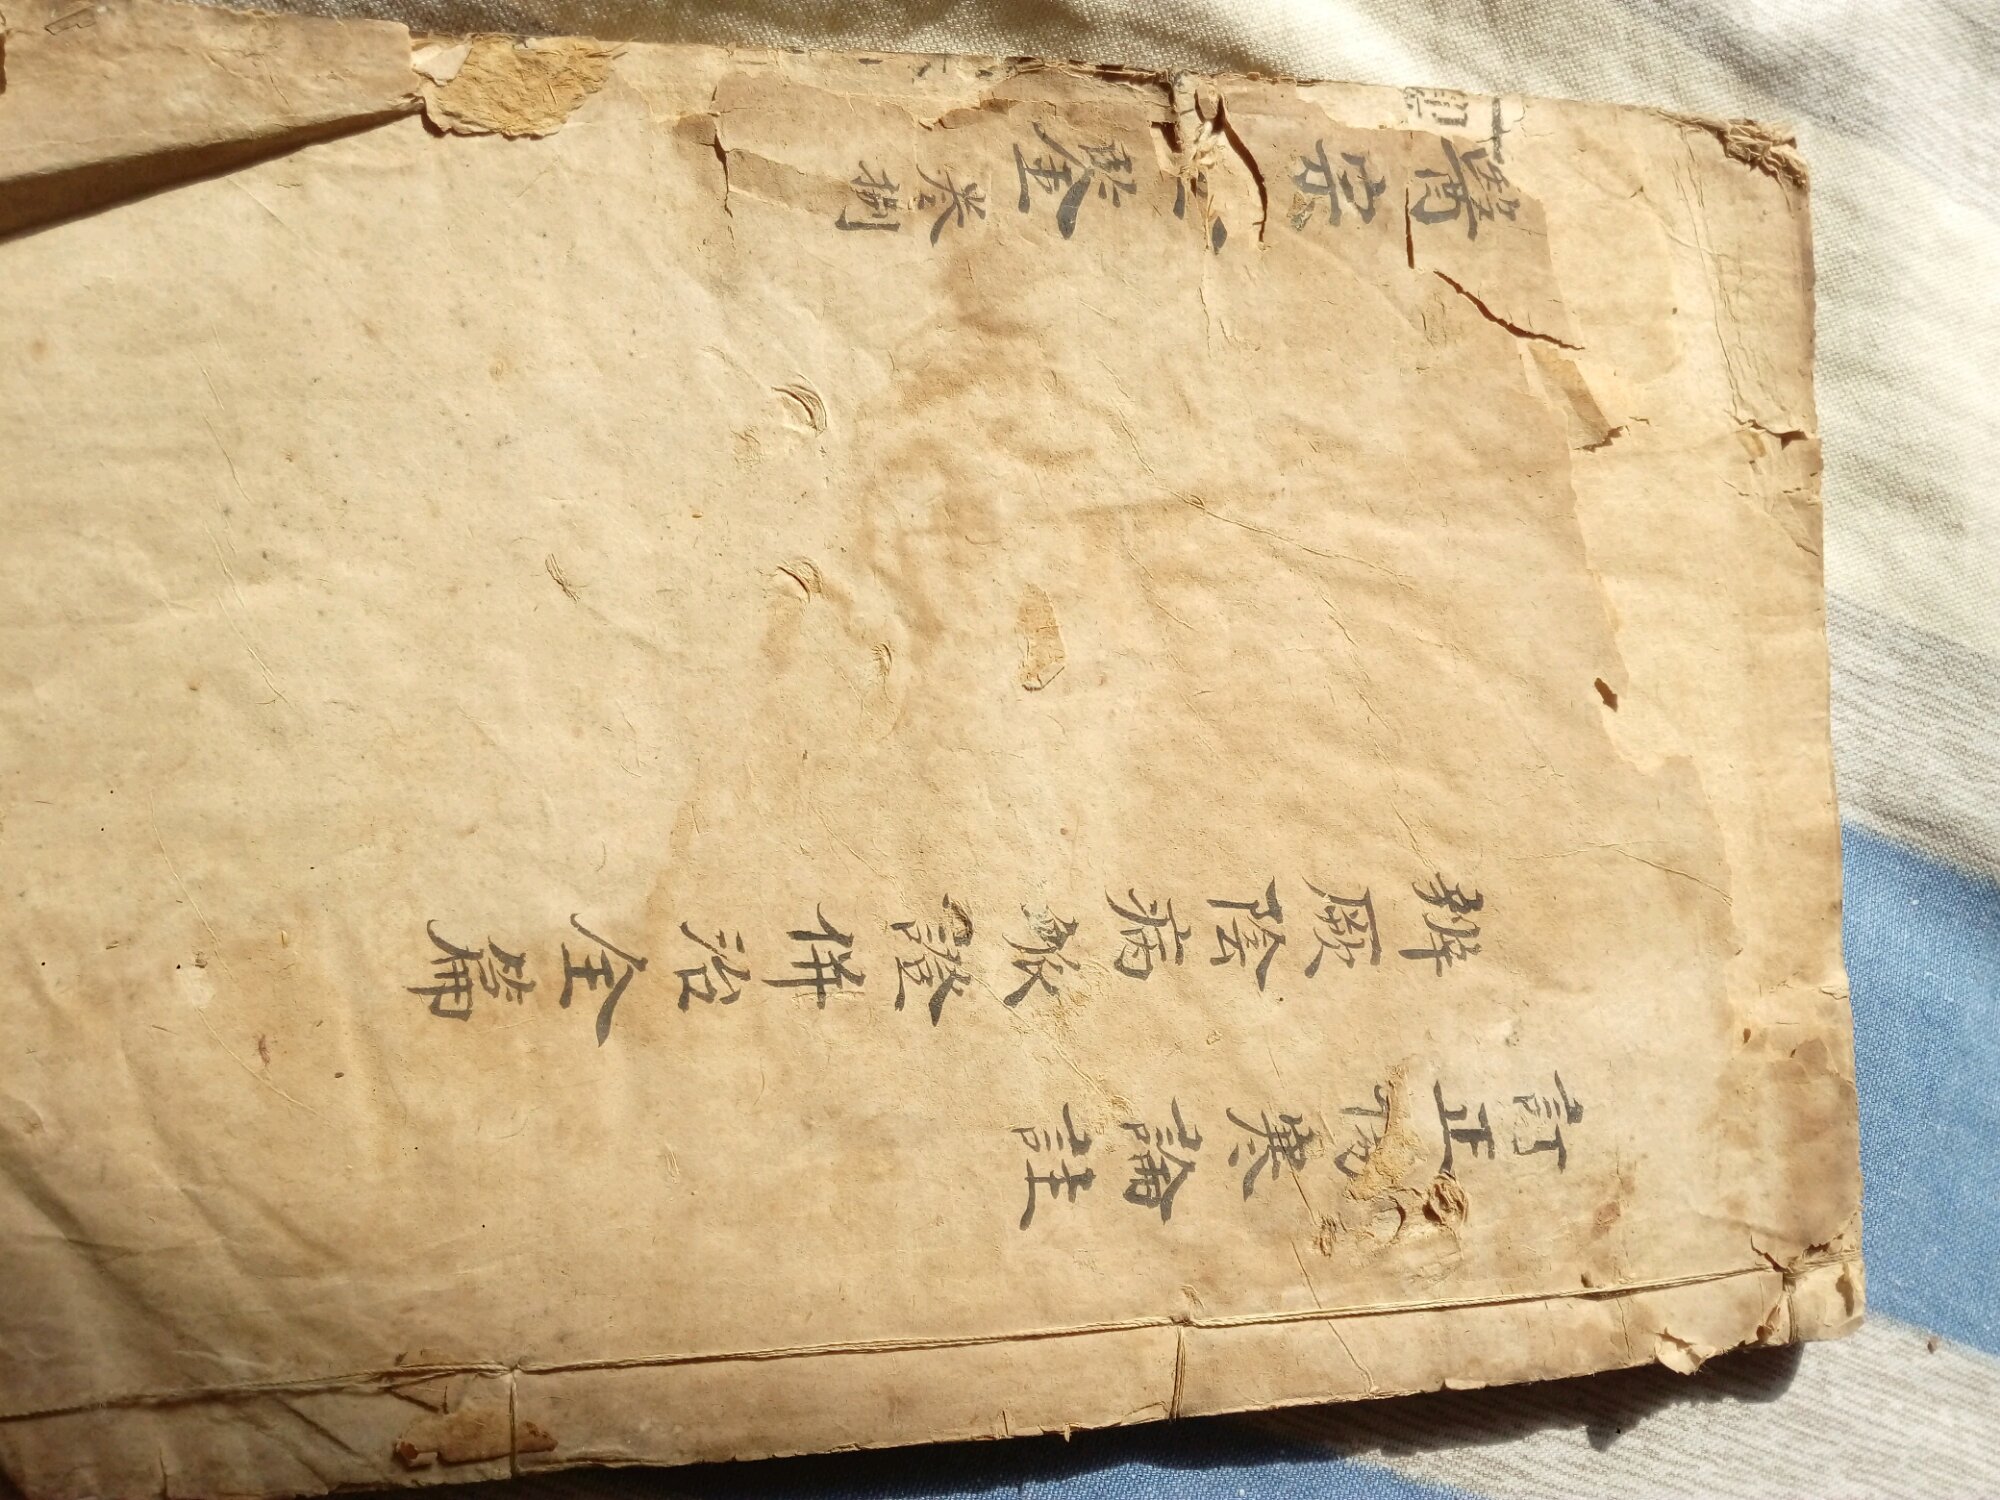 訂正傷寒論註
辨厥陰病脈證併治全篇
醫宗金鑒 卷捌